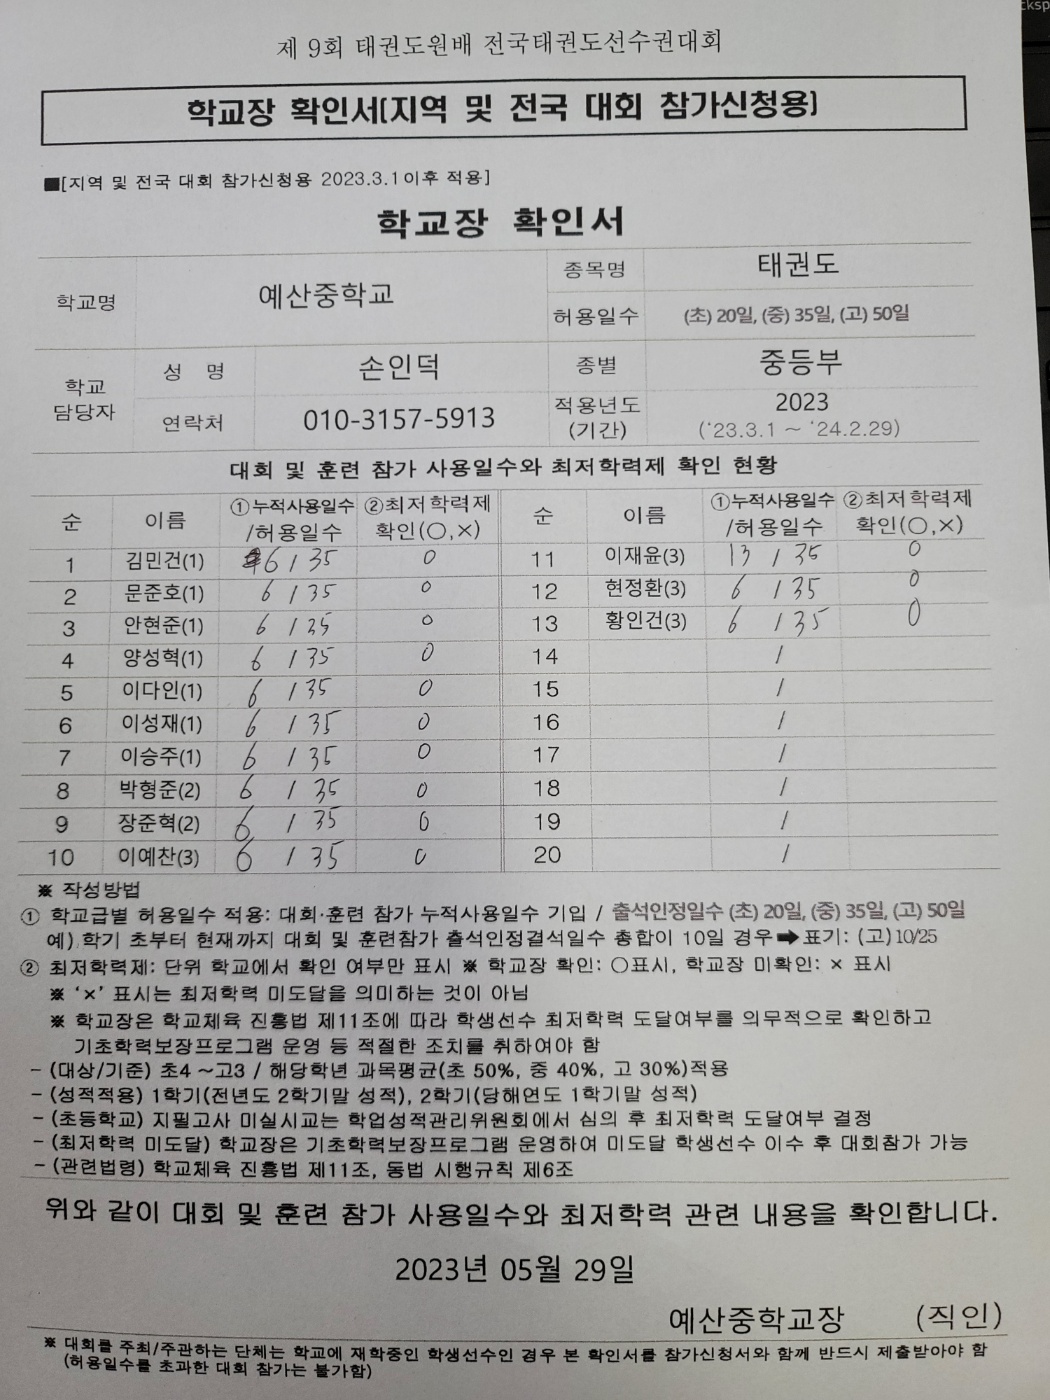 제 9회 태권도원배 전국태권도선수권대회
학교장 확인서(지역 및 전국 대회 참가신청용)
■[지역 및 전국 대회 참가신청용 2023.3.1이후 적용]
학교장 확인서
학교명 예산중학교 종목명 태권도
허용일수 (초) 20일, (중) 35일, (고) 50일
학교 담당자 성 명 손인덕 종별 중등부
연락처 010-3157-5913 적용년도 (기간) 2023 ('23.3.1 ~ '24.2.29)
대회 및 훈련 참가 사용일수와 최저학력제 확인 현황
순 이름 ①누적사용일수 /허용일수 ②최저학력제 확인(○,×) 순 이름 ①누적사용일수 /허용일수 ②최저학력제 확인(○,×)
1 김민건(1) 6 / 35 0 11 이재윤(3) 13 / 35 0
2 문준호(1) 6 / 35 0 12 현정환(3) 6 / 35 0
3 안현준(1) 6 / 35 0 13 황인건(3) 6 / 35 0
4 양성혁(1) 6 / 35 0 14 /
5 이다인(1) 6 / 35 0 15 /
6 이성재(1) 6 / 35 0 16 /
7 이승주(1) 6 / 35 0 17 /
8 박형준(2) 6 / 35 0 18 /
9 장준혁(2) 6 / 35 0 19 /
10 이예찬(3) 6 / 35 0 20 /
※ 작성방법
① 학교급별 허용일수 적용: 대회·훈련 참가 누적사용일수 기입 / 출석인정일수 (초) 20일, (중) 35일, (고) 50일
예) 학기 초부터 현재까지 대회 및 훈련참가 출석인정결석일수 총합이 10일 경우➡표기: (고)10/25
② 최저학력제: 단위 학교에서 확인 여부만 표시 ※ 학교장 확인: ○표시, 학교장 미확인: × 표시
※ '×' 표시는 최저학력 미도달을 의미하는 것이 아님
※ 학교장은 학교체육 진흥법 제11조에 따라 학생선수 최저학력 도달여부를 의무적으로 확인하고
기초학력보장프로그램 운영 등 적절한 조치를 취하여야 함
- (대상/기준) 초4 ~고3 / 해당학년 과목평균(초 50%, 중 40%, 고 30%)적용
- (성적적용) 1학기(전년도 2학기말 성적), 2학기(당해연도 1학기말 성적)
- (초등학교) 지필고사 미실시교는 학업성적관리위원회에서 심의 후 최저학력 도달여부 결정
- (최저학력 미도달) 학교장은 기초학력보장프로그램 운영하여 미도달 학생선수 이수 후 대회참가 가능
- (관련법령) 학교체육 진흥법 제11조, 동법 시행규칙 제6조
위와 같이 대회 및 훈련 참가 사용일수와 최저학력 관련 내용을 확인합니다.
2023년 05월 29일
예산중학교장 (직인)
※ 대회를 주최/주관하는 단체는 학교에 재학중인 학생선수인 경우 본 확인서를 참가신청서와 함께 반드시 제출받아야 함
(허용일수를 초과한 대회 참가는 불가함)